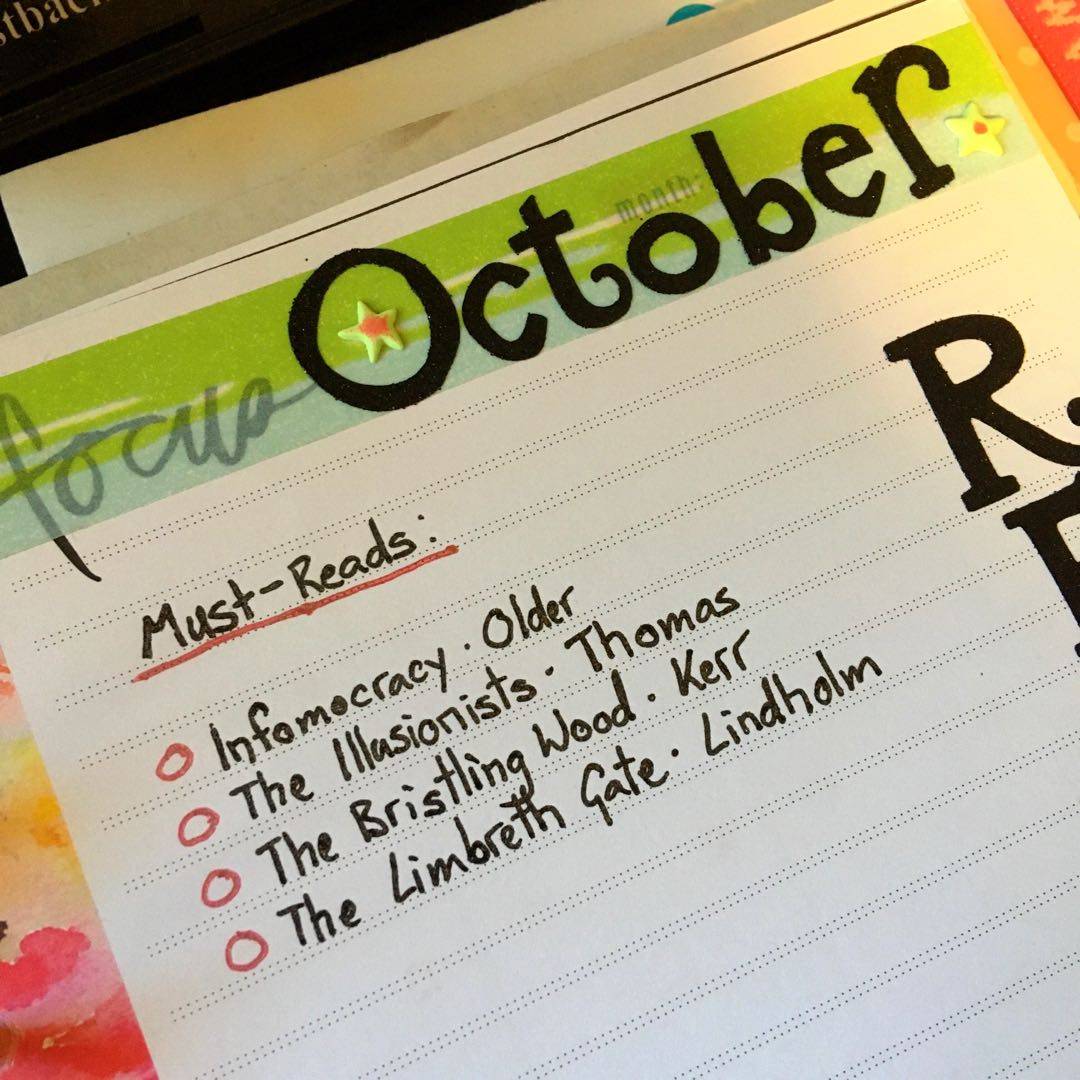 October
month:
focus
R.
Must-Reads:
Infomocracy · Older
The Illusionists · Thomas
The Bristling Wood · Kerr
The Limbreth Gate · Lindholm